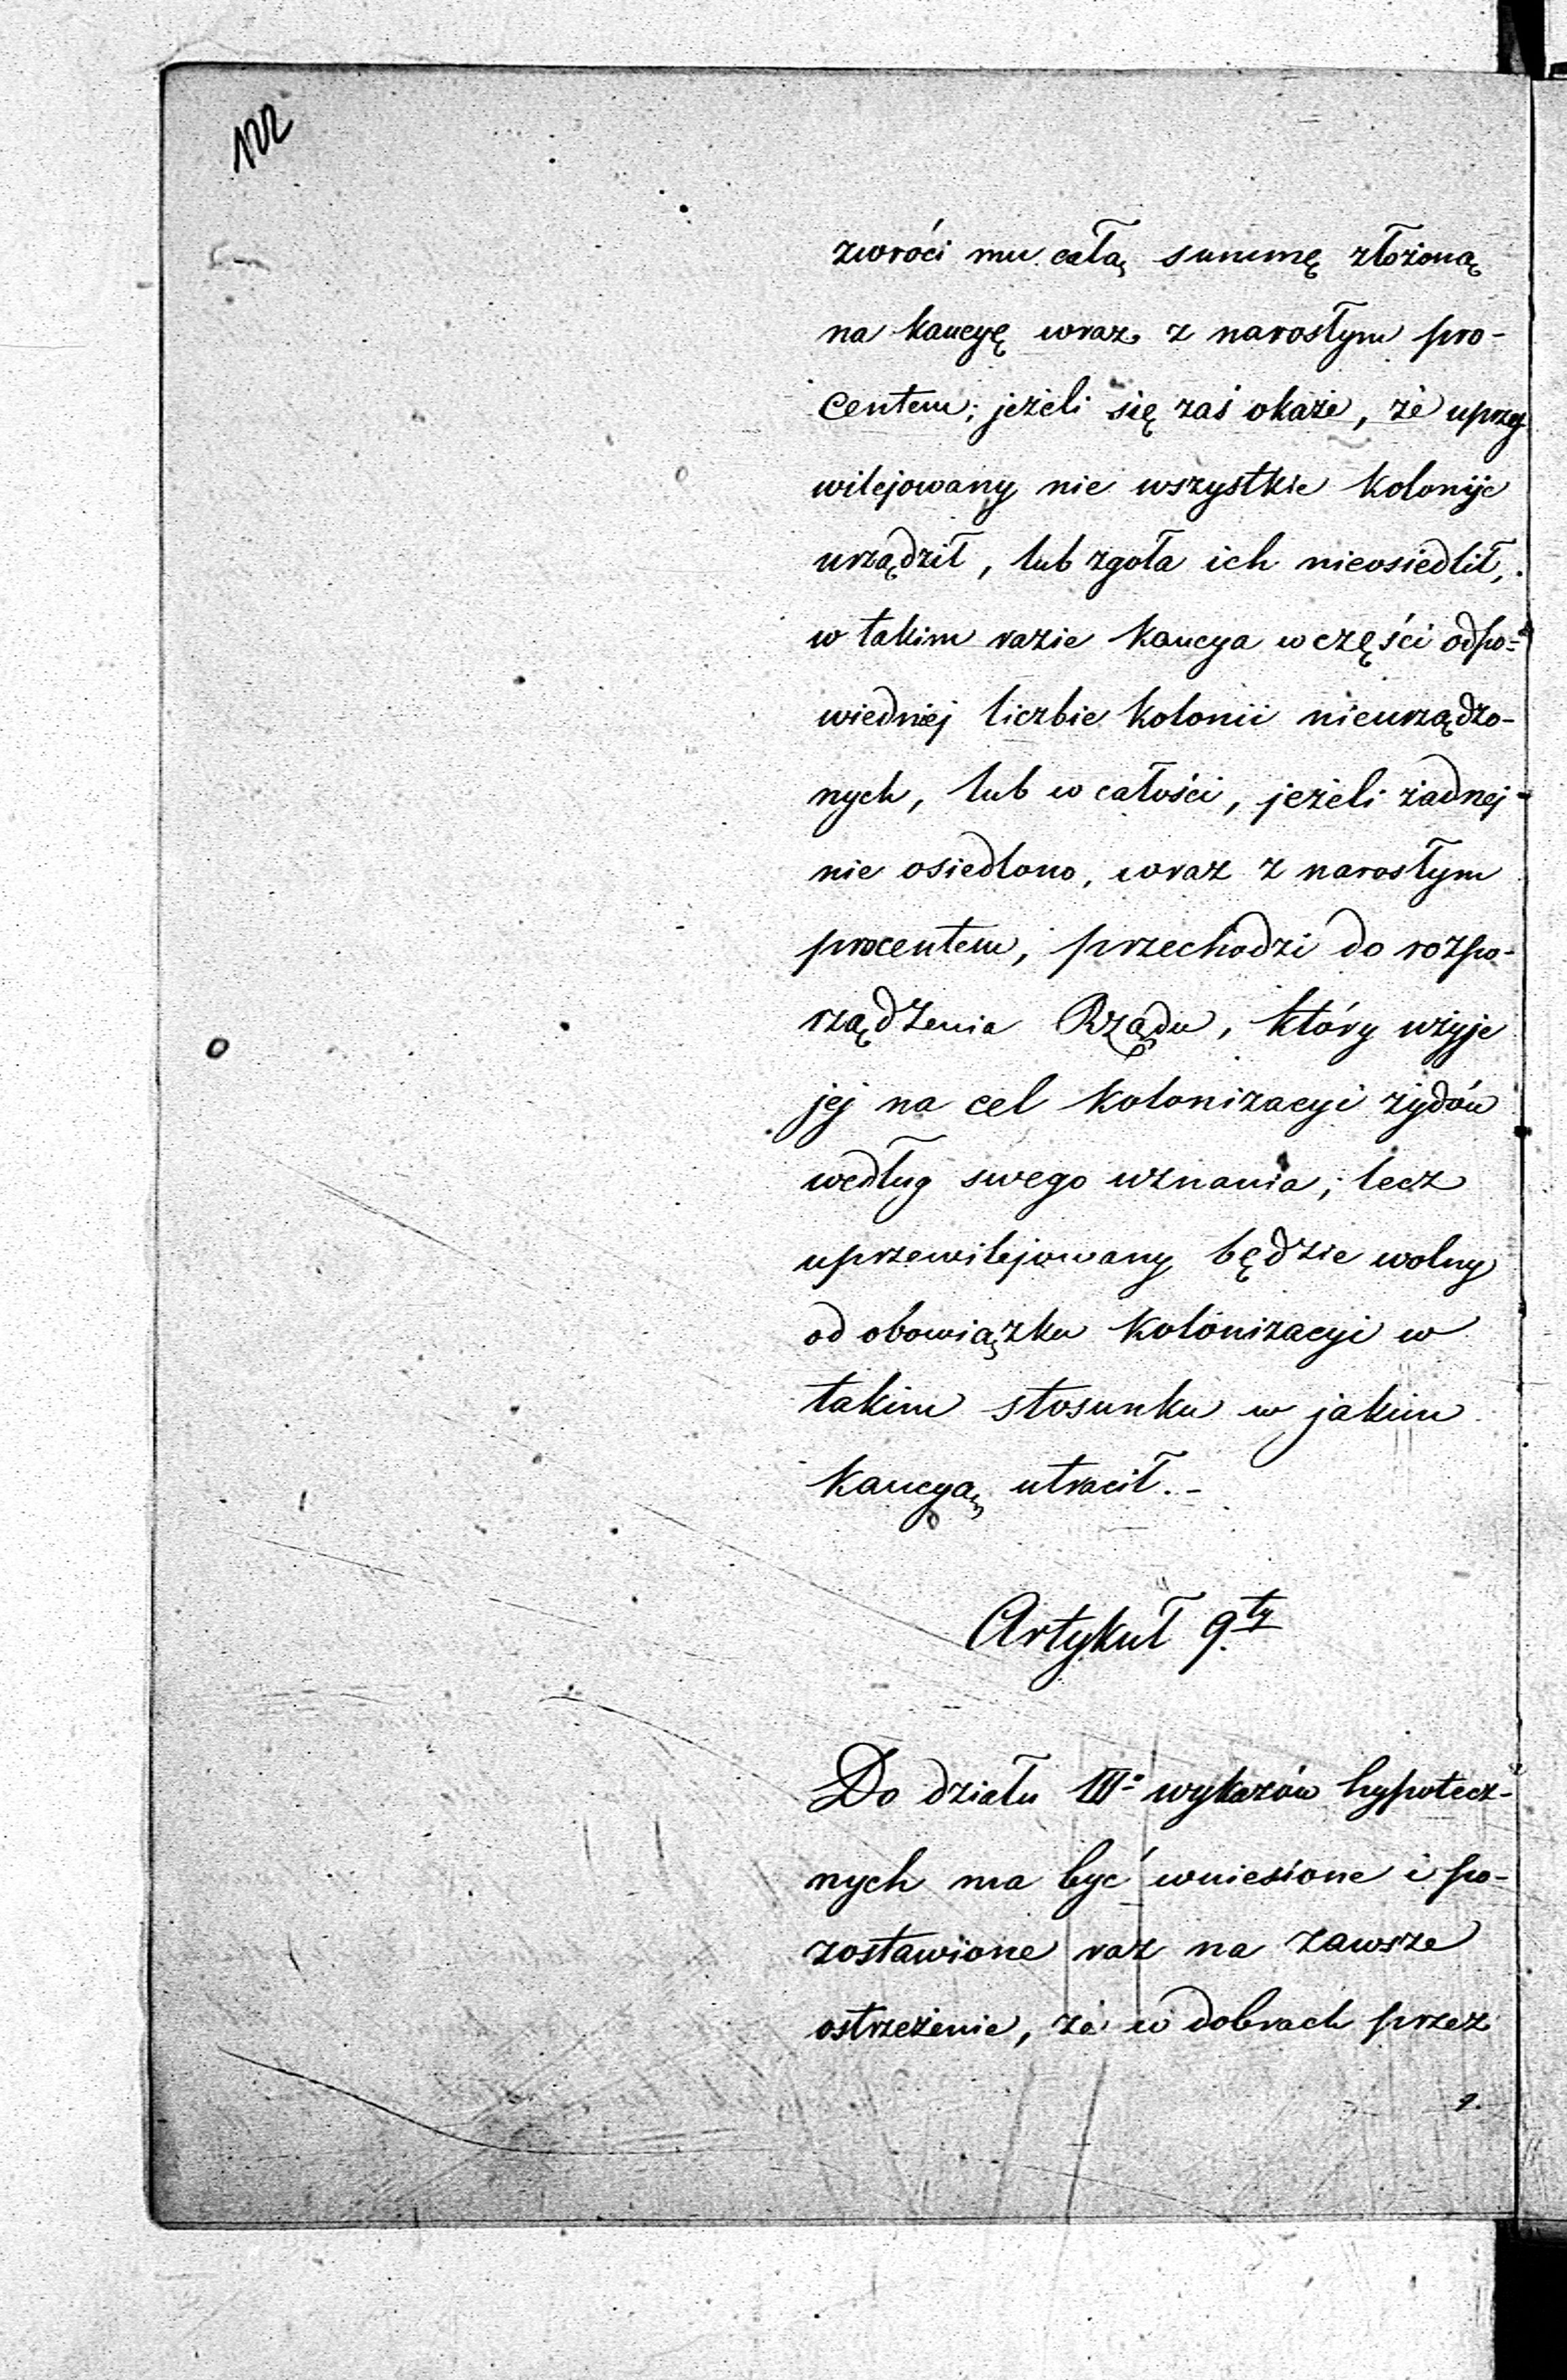 122
zwróci mu całą summę złożoną
na kaucyę wraz z narosłym pro-
centem; jeżeli się zaś okaże, że uprzy
wilejowany nie wszystkie kolonije
urządził, lub zgoła ich nieosiedlił,
w takim razie kaucya w części odpo-
wiedniej liczbie kolonii nieurządzo-
nych, lub w całości, jeżeli żadnej
nie osiedlono, wraz z narosłym
procentem, przechodzi do rozpo-
rządzenia Rządu, który użyje
jej na cel kolonizacyi żydów
według swego uznania; lecz
uprzewilejowany będzie wolny
od obowiązku kolonizacyi w
takim stosunku w jakim
kaucyą utracił.-
Artykuł 9.ty
Do działu III° wykazów hypotecz-
nych ma być wniesione i po-
zostawione raz na zawsze
ostrzeżenie, że w dobrach przez